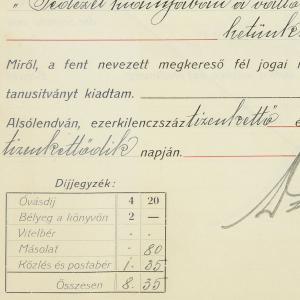 " Fedezet hiányában a váltó
hetünk
Miről, a fent nevezett megkereső fél jogai
tanusítványt kiadtam.
Alsólendván, ezerkilenczszáz tizenkettő é
tizenkettődik napján.
Díjjegyzék:
Óvásdíj 4 20
Bélyeg a könyvön 2 —
Vitelbér - -
Másolat - 80
Közlés és postabér 1 35
Összesen 8 35